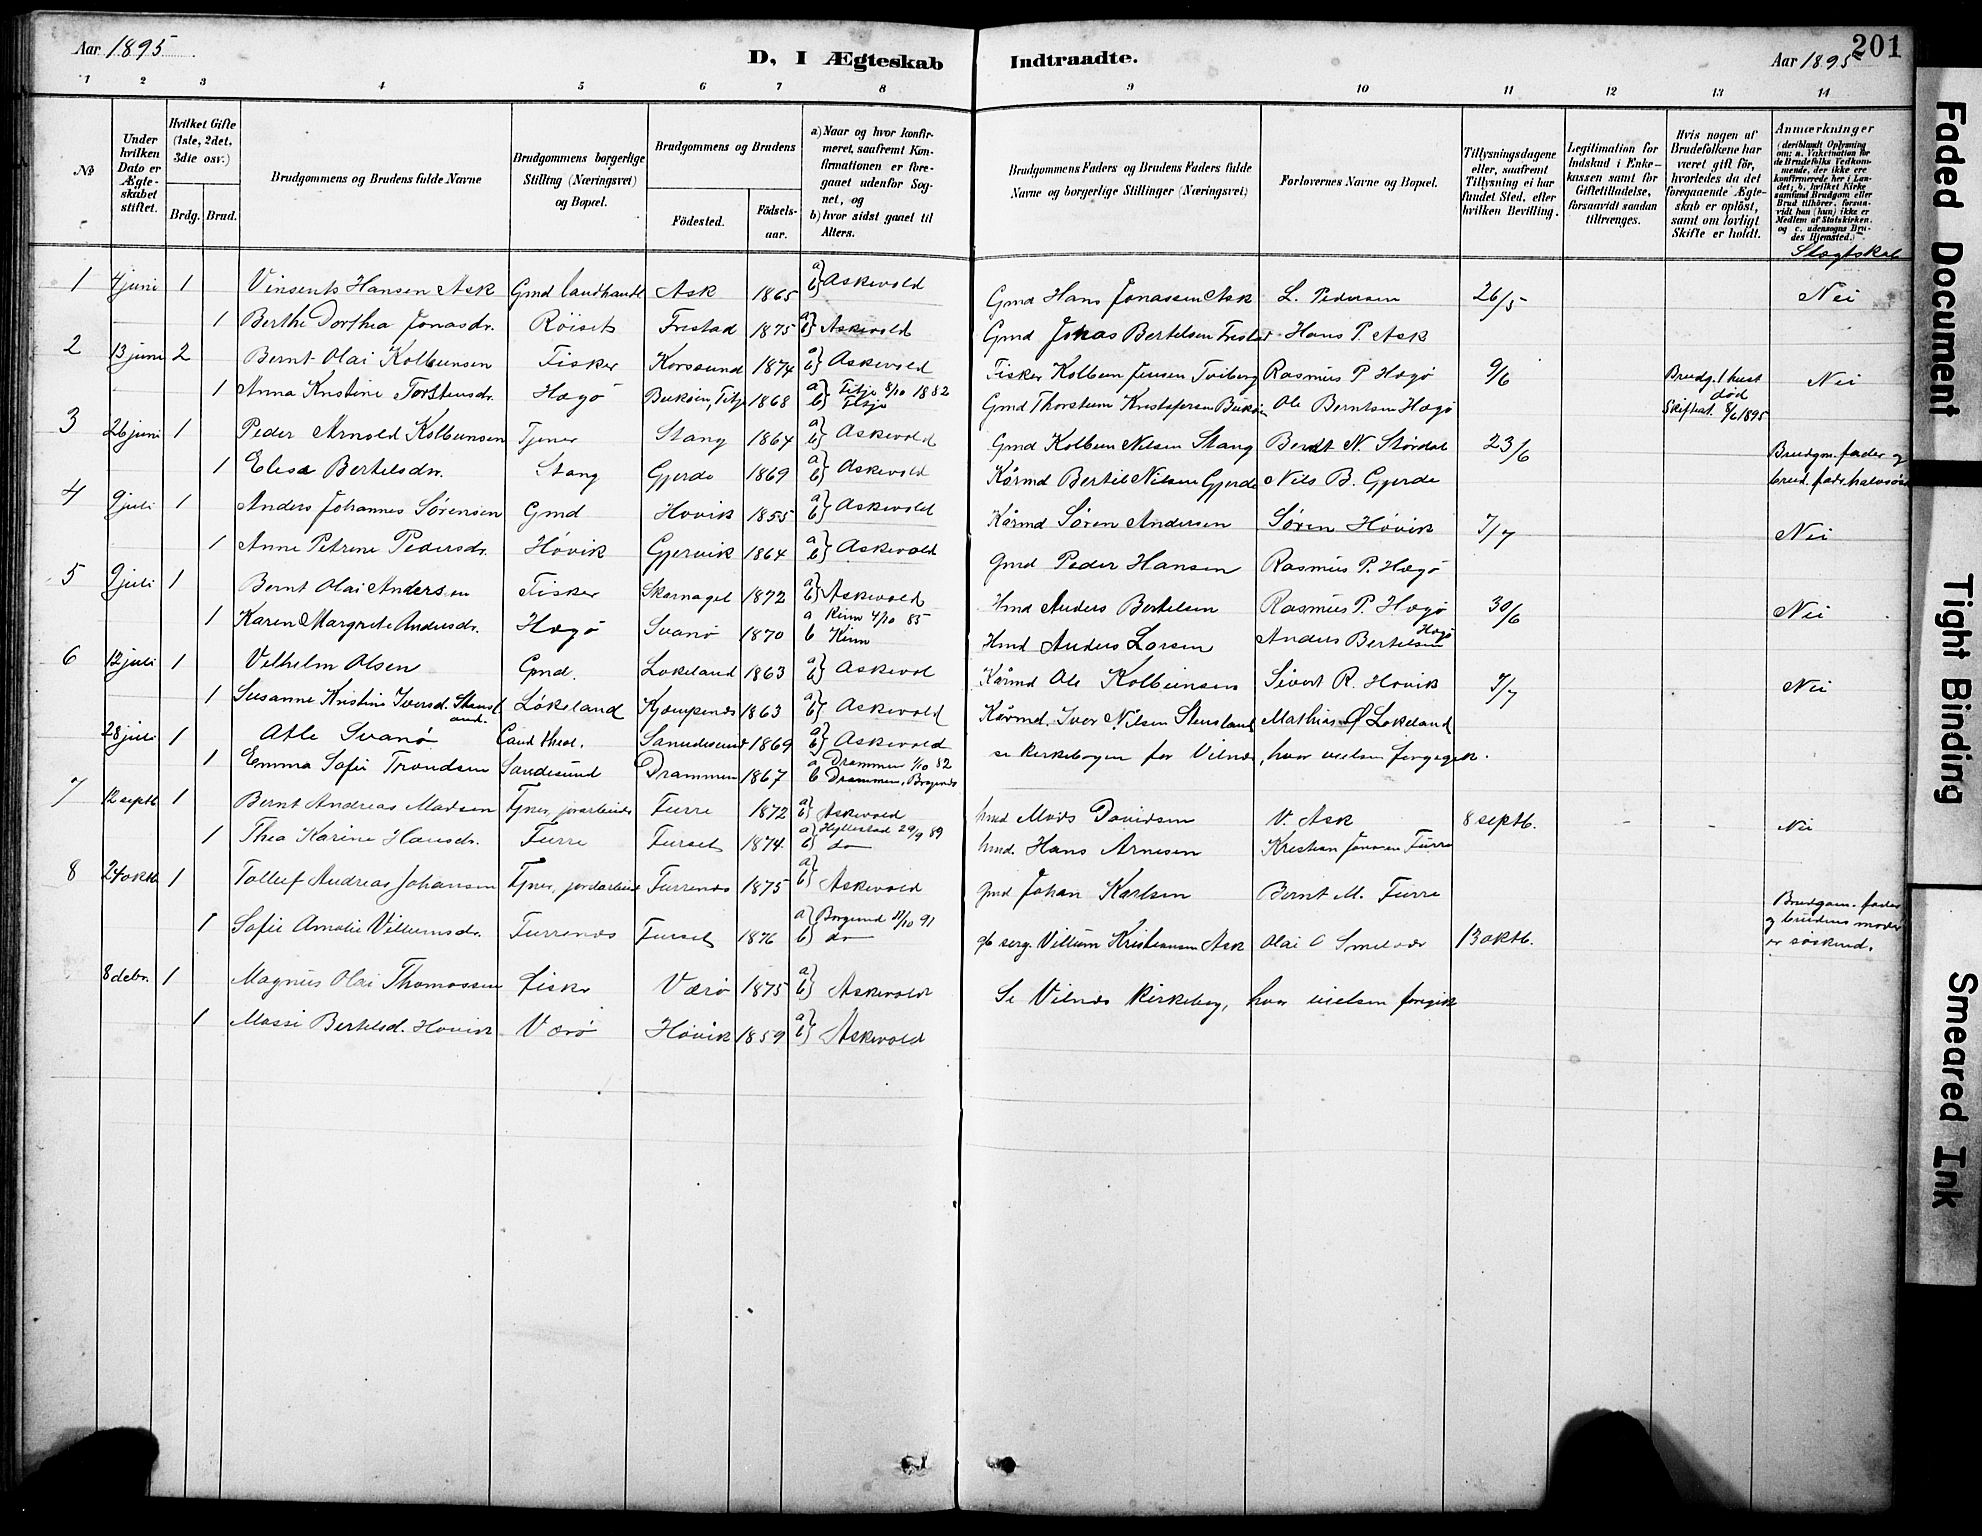 Aar 1895
D, I Ægteskab Indtraadte.
Aar 1895
201
1 2 3 4 5 6 7 8 9 10 11 12 13 14
№
Under hvilken Dato er Ægteskabet stiftet.
Hvilket Gifte (1ste, 2det, 3die osv.)
Brdg. Brud.
Brudgommens og Brudens fulde Navne
Brudgommens borgerlige Stilling (Næringsvei) og Bopæl.
Brudgommens og Brudens
Födested. Födselsaar.
a) Naar og hvor konfirmeret, saafremt Konfirmationen er foregaaet udenfor Sognet, og
b) hvor sidst gaaet til Alters.
Brudgommens Faders og Brudens Faders fulde Navne og borgerlige Stillinger (Næringsvei)
Forlovernes Navne og Bopæl.
Tillysningsdagene eller, saafremt Tillysning ei har fundet Sted, efter hvilken Bevilling.
Legitimation for Indskud i Enkekassen samt for Giftetilladelse, forsaavidt saadan tiltrænges.
Hvis nogen af Brudefolkene har været gift för, hvorledes da det foregaaende Ægteskab er oplöst, samt om lovligt Skifte er holdt.
Anmærkninger (deriblandt Oplysning om: a. Vaksination for de Brudefolks Vedkommende, der ikke ere konfirmerede her i Landet; b. hvilket Kirkesamfund Brudgom eller Brud tilhörer, forsaavidt han (hun) ikke er Medlem af Statskirken, og c. udensogns Brudes Hjemsted.)
Slægtskab
1 4 juni 1 Vinsents Hansen Ask Gmd landhandl Ask 1865 a b} Askevold Gmd Hans Jonassen Ask L. Pedersen 26/5 Nei
1 Berthe Dorthea Jonasdr. Röiset Frestad 1875 a b} Askevold Gmd Jonas Bertelsen Frestad Hans P. Ask
2 13 juni 2 Bernt Olai Kolbeinsen Fisker Korssund 1874 a b} Askevold Fisker Kolbein Jensen Tviberg Rasmus P. Hægö 9/6 Brudg. 1 hust død Skifteat. 8/6 1895 Nei
1 Anna Kristine Torstensdr. Hægö 1868 a) 8/10 1882 b) Gmd Thorstein Kristofersen Ole Berntsen Hægö
3 26 juni 1 Peder Arnold Kolbeinsen Tjener Stang 1864 a b} Askevold Gmd Kolbein Nilsen Stang Berndt N. Stördal 23/6 Brudgm. fader og
1 Elise Bertelsdr. Stang Gjerde 1869 a b} Askevold Kårmd Bertil Nilsen Gjerde Nils B. Gjerde brud. fadr.
4 9 juli 1 Anders Johannes Sørensen Gmd Hovik 1855 a b} Askevold Kårmd Søren Andersen Søren Hövik 7/7 Nei
1 Anne Petrine Pedersdr. Hövik Gjervik 1864 a b} Askevold Gmd Peder Hansen Rasmus P. Hægö
5 9 juli 1 Bernt Olai Andersen Fisker Skornagel 1872 a b} Askevold Hmd Anders Bertelsen Rasmus P. Hægö 30/6 Nei
1 Karen Margrete Andersdr. Hægö Svanö 1870 a Kinn 4/10 85 b Kinn Hmd Anders Larsen Anders Bertelsen Hægö
6 12 juli 1 Velhelm Olsen Gmd. Lokeland 1863 a b} Askevol Kårmd Ole Kolbeinsen Sivert R. Hovik 7/7 Nei
1 Susanne Kristine Iversd. Stensland. Løkeland Kjempenes 1863 a b} Askevold Kårmd. Iver Nilsen Stensland Mathias Ø Lokeland
28 juli 1 Atle Svanö Cand. theol. 1869 a b} Askevold se kirkebogen for Vilnes, hvor vielsen foregik.
1 Emma Sofie Trondsen Sandesund Drammen 1867 a Drammen 1/10 82 b Drammen, Bragernes
7 12 septb 1 Bernt Andreas Madsen Tjner, jorarbeider Furre 1872 a b} Askevold hmd Mads Davidsen V. Ask 8 septb. - - Nei
1 Thea Karine Hansdr. Furre Furset 1874 a) Hyllestad 29/9 89 b) do hmd. Hans Arnesen Kristian Jonsen Furre
8 24 oktb 1 Tollef Andreas Johansen Tjner, jordarbeid Furrenes 1875 a b} Askevold gmd Johan Karlsen Bernt M. Furre Brudgom. fader
1 Sofie Amalie Villumsdr. Furrenes Furset 1876 a) Borgund 11/10 91 b) do gb serg. Villum Kristiansen Ask Olai O Smelvær 13 oktb. og brudens moder er søskend.
8 debr. 1 Magnus Olai Thomassen Fisker Værö 1875 a b} Askevold Se Vilnes Kirkebog, hvor vielsen foregik
1 Massi Bertelsd. Hovik Værö Hövik 1859 a b} Askevold
Faded Document
Tight Binding
Smeared Ink